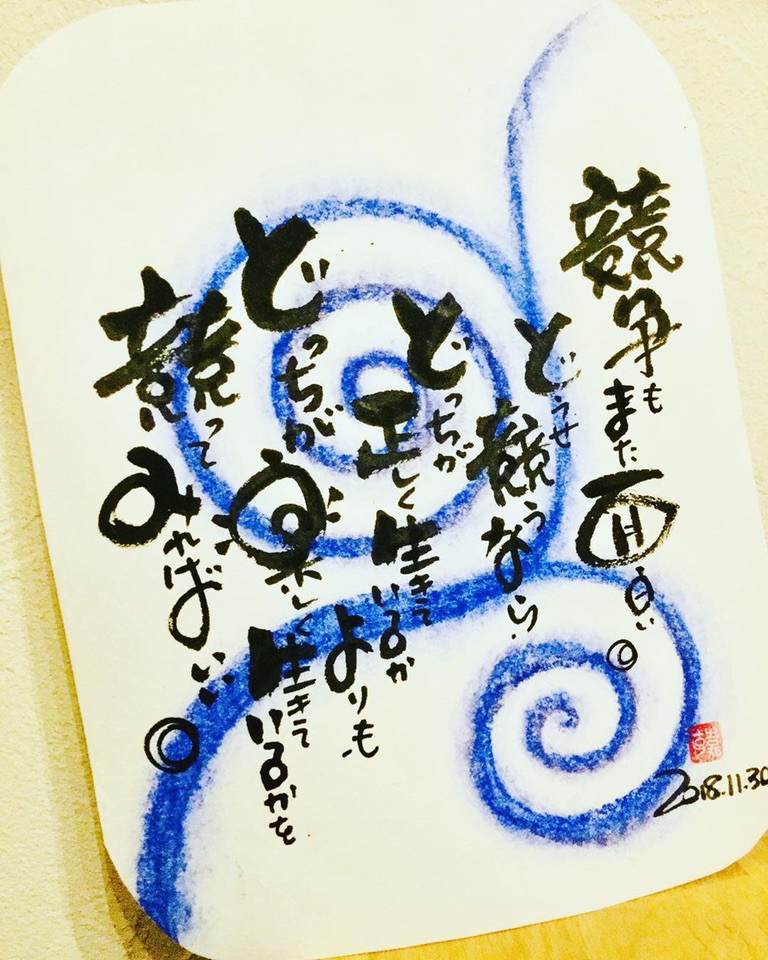 競争もまた面白い。
どうせ競うなら、
どっちが正しく生きているか
よりも、
どっちが楽しく生きているかを
競ってみればいい。
2018.11.30